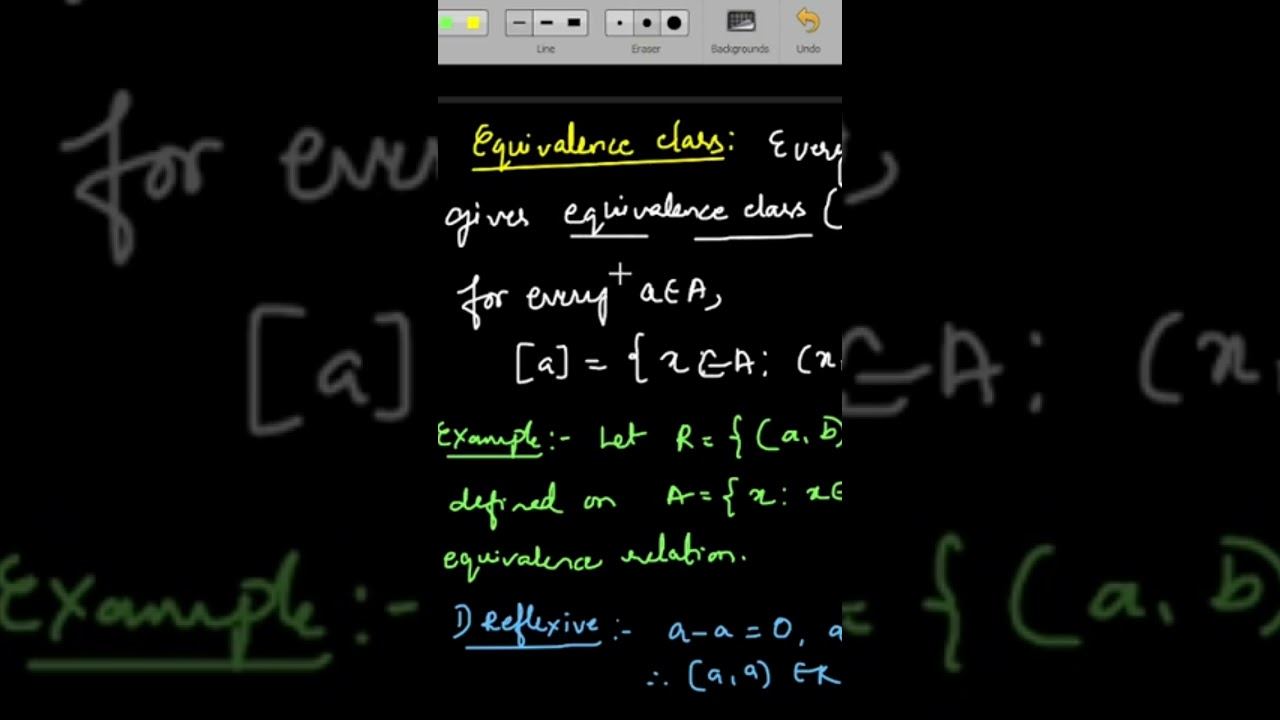 Line
Eraser
Backgrounds
Undo
Equivalence class: Every
gives equivalence class (
for every a∈A,
[a] = { x∈A: (x,
Example:- Let R = { (a, b)
defined on A = { x: x∈
equivalence relation.
1) Reflexive:- a-a = 0, a
∴ (a, a) ∈ R